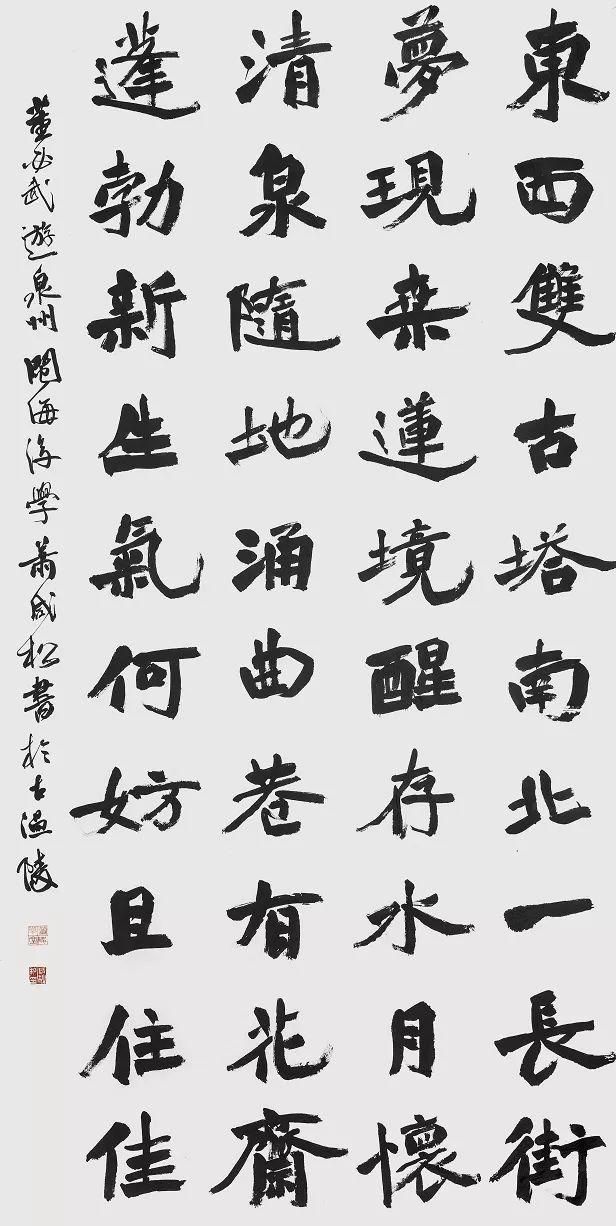 東西雙古塔南北一長街
夢現桒蓮境醒存水月懷
清泉隨地涌曲巷有花齋
蓬勃新生氣何妨且住佳
董必武遊泉州閩海後學蕭成松書於古溫陵